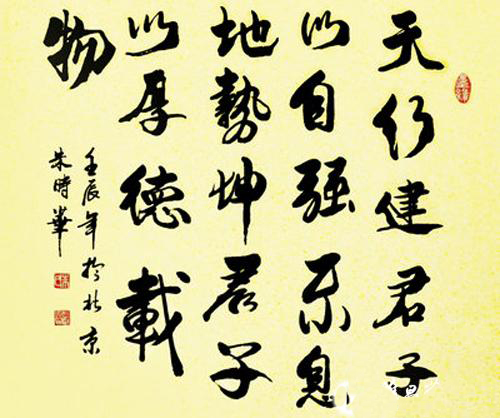 天行建君子
以自强不息
地勢坤君子
以厚德載
物
壬辰年於北京
朱時華